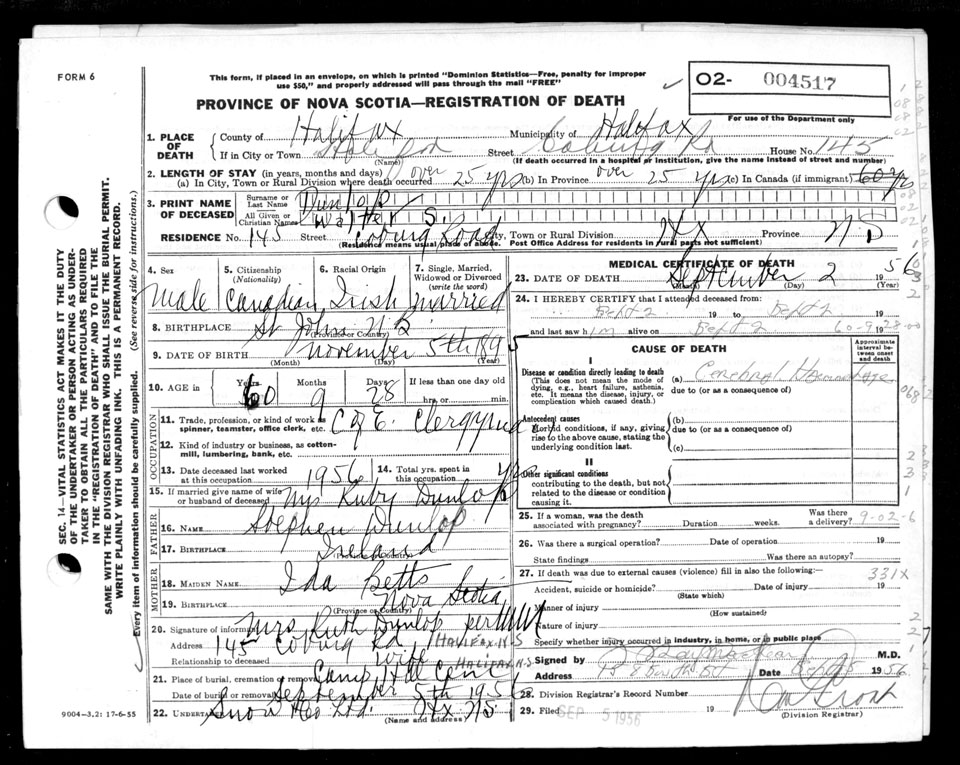 FORM 6
This form, if placed in an envelope, on which is printed "Dominion Statistics—Free, penalty for improper
use $50," and properly addressed will pass through the mail "FREE"
O2- 004517
PROVINCE OF NOVA SCOTIA—REGISTRATION OF DEATH
For use of the Department only
1. PLACE OF DEATH County of Halifax Municipality of Halifax
If in City or Town (Name) Street Coburg Rd House No. 145
(If death occurred in a hospital or institution, give the name instead of street and number)
2. LENGTH OF STAY (in years, months and days)
(a) In City, Town or Rural Division where death occurred over 25 yrs (b) In Province over 25 yrs (c) In Canada (if immigrant) 60 yrs
3. PRINT NAME OF DECEASED Surname or Last Name Dunlop
All Given or Christian Names Walter S.
RESIDENCE No. 145 Street Coburg Road City, Town or Rural Division Hfx Province N S
(Residence means usual place of abode. Post Office Address for residents in rural parts not sufficient)
4. Sex 5. Citizenship (Nationality) 6. Racial Origin 7. Single, Married, Widowed or Divorced (write the word)
Male Canadian Irish married
8. BIRTHPLACE St John N.B.
(Province or Country)
9. DATE OF BIRTH November 5th 1895
(Month) (Day) (Year)
10. AGE in Years 60 Months 9 Days 28 If less than one day old hrs. or min.
OCCUPATION
11. Trade, profession or kind of work as spinner, teamster, office clerk, etc. C of E. Clergyman
12. Kind of industry or business, as cotton-mill, lumbering, bank, etc.
13. Date deceased last worked at this occupation 1956 14. Total yrs. spent in this occupation yrs
15. If married give name of wife or husband of deceased Mrs Ruby Dunlop
FATHER
16. NAME Stephen Dunlop
17. BIRTHPLACE Ireland
(Province or Country)
MOTHER
18. MAIDEN NAME Ida Betts
19. BIRTHPLACE Nova Scotia
(Province or Country)
20. Signature of informant Mrs Ruth Dunlop per
Address 145 Coburg Rd. HALIFAX N-S
Relationship to deceased wife HALIFAX N.S
21. Place of burial, cremation or removal Camp Hill Cem
Date of burial or removal September 5th 1956
22. UNDERTAKER Snow & Co Ltd. Hfx N S
(Name and Address)
MEDICAL CERTIFICATE OF DEATH
23. DATE OF DEATH September 2 1956
(Month) (Day) (Year)
24. I HEREBY CERTIFY that I attended deceased from:
Sept 2 19 to Sept 2 19
and last saw him alive on Sept 2 19
60-9-28-00
CAUSE OF DEATH
Approximate interval between onset and death
I
Disease or condition directly leading to death (a) Cerebral Haemorrhage
(This does not mean the mode of dying, e.g., heart failure, asthenia, etc. It means the disease, injury, or complication which caused death.)
due to (or as a consequence of)
Antecedent causes (b)
Morbid conditions, if any, giving rise to the above cause, stating the underlying condition last.
due to (or as a consequence of)
(c)
II
Other significant conditions
contributing to the death, but not related to the disease or condition causing it.
25. If a woman, was the death associated with pregnancy? Duration weeks. Was there a delivery?
9-02-6
26. Was there a surgical operation? Date of operation 19
State findings Was there an autopsy?
27. If death was due to external causes (violence) fill in also the following:—
331X
Accident, suicide or homicide? Date of injury 19
(State which)
Manner of injury
(How sustained)
Nature of injury
Specify whether injury occurred in industry, in home, or in public place
Signed by M.D.
Address Date Sept 5 1956
28. Division Registrar's Record Number
29. Filed SEP 5 1956 19
(Division Registrar)
9004—3.2: 17-6-55
SEC. 14—VITAL STATISTICS ACT MAKES IT THE DUTY
OF THE UNDERTAKER OR PERSON ACTING AS UNDER-
TAKER TO OBTAIN ALL THE PARTICULARS REQUIRED
IN THE "REGISTRATION OF DEATH" AND TO FILE THE
SAME WITH THE DIVISION REGISTRAR WHO SHALL ISSUE THE BURIAL PERMIT.
WRITE PLAINLY WITH UNFADING INK. THIS IS A PERMANENT RECORD.
Every item of information should be carefully supplied. (See reverse side for instructions.)